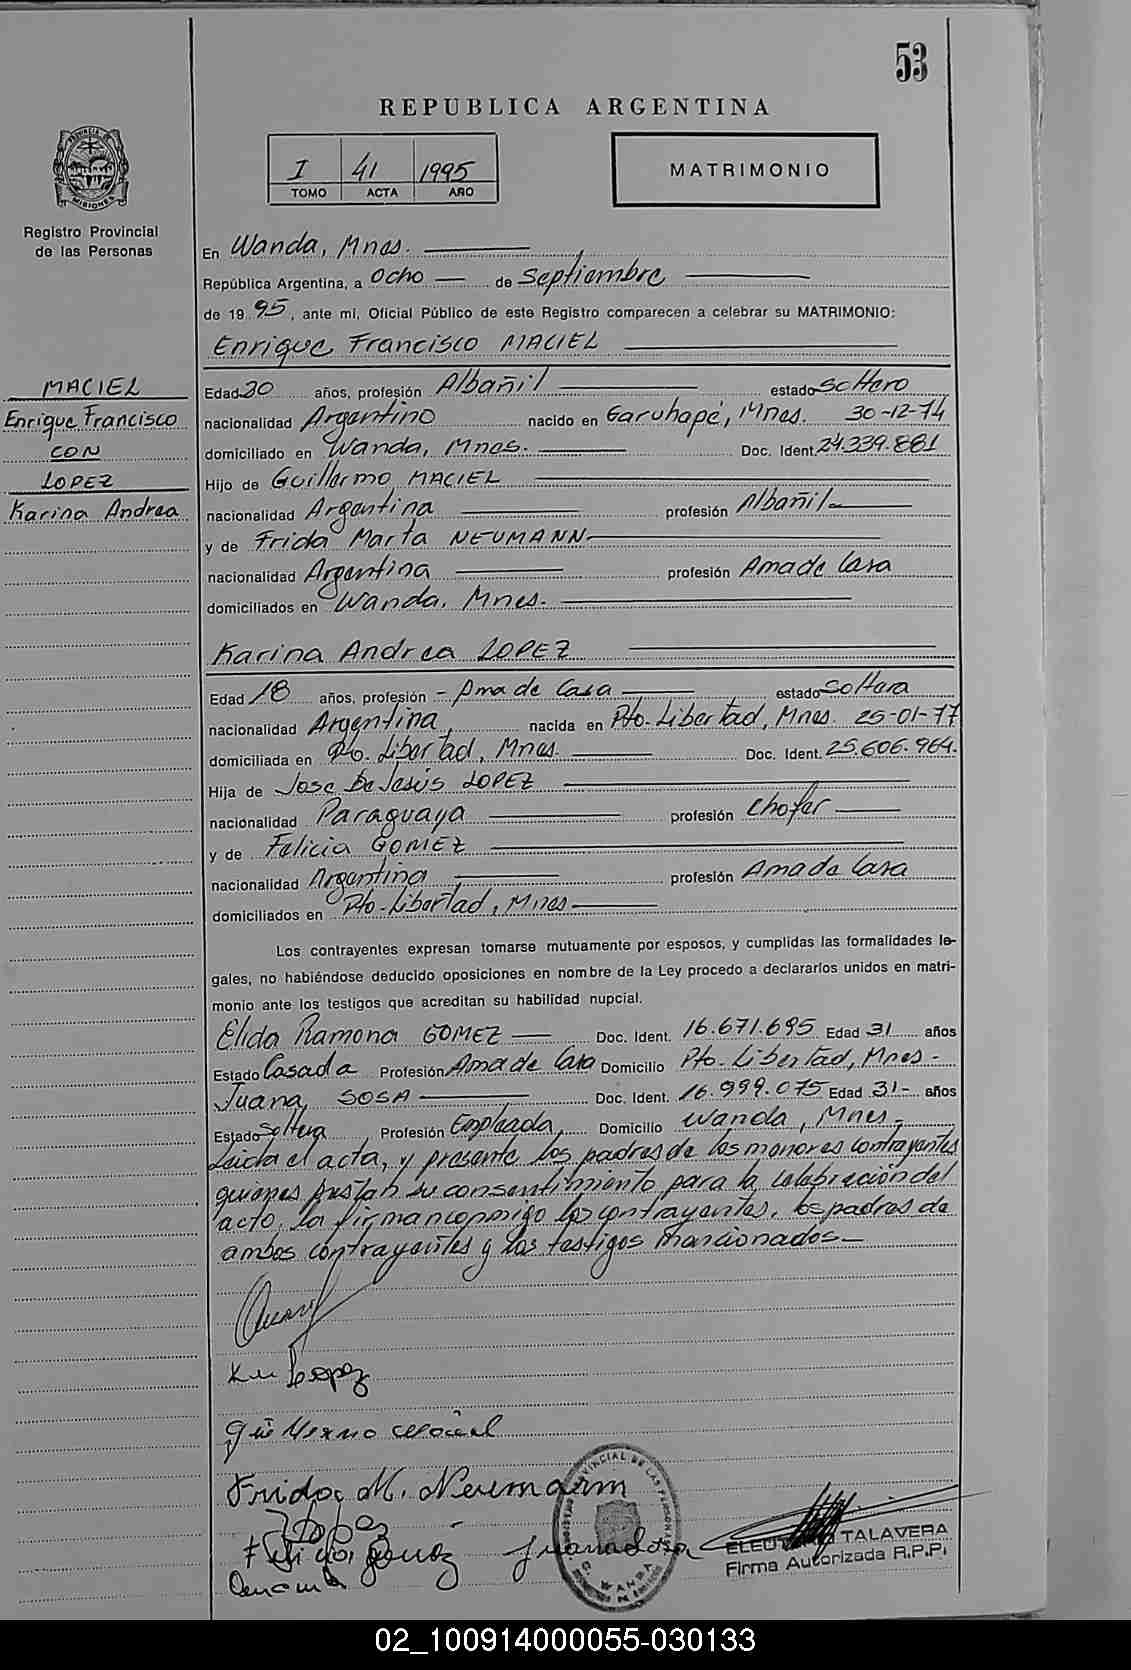 53
REPUBLICA ARGENTINA
I 41 1995
TOMO ACTA AÑO
MATRIMONIO
PROVINCIA DE MISIONES
Registro Provincial
de las Personas
En Wanda, Mnes.
República Argentina, a Ocho de Septiembre
de 19 95, ante mi, Oficial Público de este Registro comparecen a celebrar su MATRIMONIO:
Enrique Francisco MACIEL
MACIEL
Enrique Francisco
CON
LOPEZ
Karina Andrea
Edad 20 años, profesión Albañil estado Soltero
nacionalidad Argentino nacido en Garuhapé, Mnes. 30-12-74
domiciliado en Wanda, Mnes. Doc. Ident. 24.339.881
Hijo de Guillermo MACIEL
nacionalidad Argentina profesión Albañil
y de Frida Marta NEUMANN
nacionalidad Argentina profesión Ama de Casa
domiciliados en Wanda, Mnes.
Karina Andrea LOPEZ
Edad 18 años, profesión - Ama de Casa estado Soltera
nacionalidad Argentina, nacida en Pto. Libertad, Mnes. 25-01-77
domiciliada en Pto. Libertad, Mnes. Doc. Ident. 25.606.964.
Hija de Jose De Jesús LOPEZ
nacionalidad Paraguaya profesión Chofer
y de Felicia GOMEZ
nacionalidad Argentina profesión Ama de Casa
domiciliados en Pto. Libertad, Mnes
Los contrayentes expresan tomarse mutuamente por esposos, y cumplidas las formalidades le-
gales, no habiéndose deducido oposiciones en nombre de la Ley procedo a declararlos unidos en matri-
monio ante los testigos que acreditan su habilidad nupcial.
Elida Ramona GOMEZ Doc. Ident. 16.671.695 Edad 31 años
Estado Casada Profesión Ama de Casa Domicilio Pto. Libertad, Mnes -
Juana SOSA Doc. Ident. 16.999.075 Edad 31- años
Estado Soltera Profesión Empleada, Domicilio Wanda, Mnes -
Leida el acta, y presente los padres de los menores contrayentes
quienes prestan su consentimiento para la celebración del
acto, la firman conmigo los contrayentes, los padres de
ambos contrayentes y los testigos mencionados -
Lopez
Guillermo Maciel
Frida M. Neumann
Lopez
Juana Sosa
TALAVERA
Firma Autorizada R.P.P.
WANDA
02_100914000055-030133